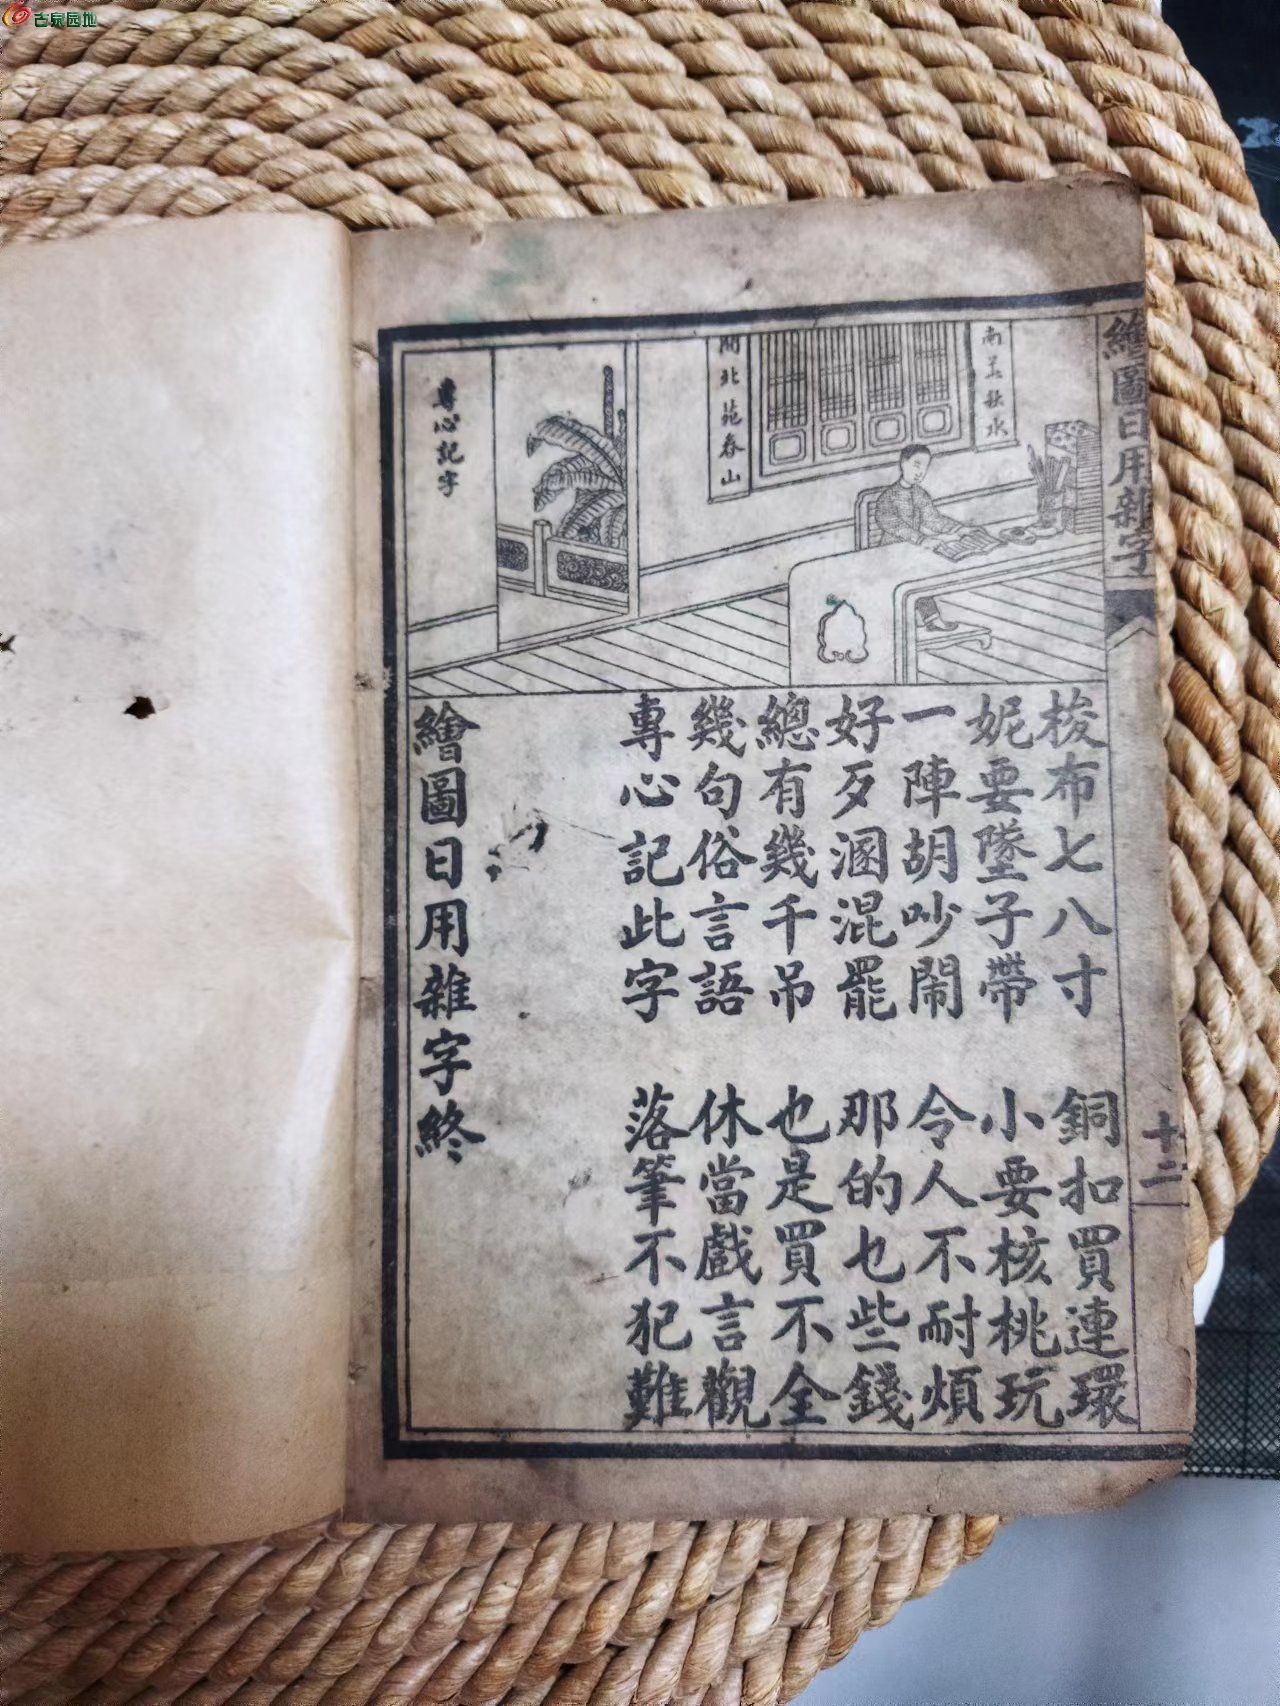 古泉园地
繪圖日用雜字
十二
南華秋水
北苑春山
專心記字
梭布七八寸 銅扣買連環
妮要墜子帶 小要核桃玩
一陣胡吵鬧 令人不耐煩
好歹溷混罷 那的乜些錢
總有幾千吊 也是買不全
幾句俗言語 休當戲言觀
專心記此字 落筆不犯難
繪圖日用雜字終